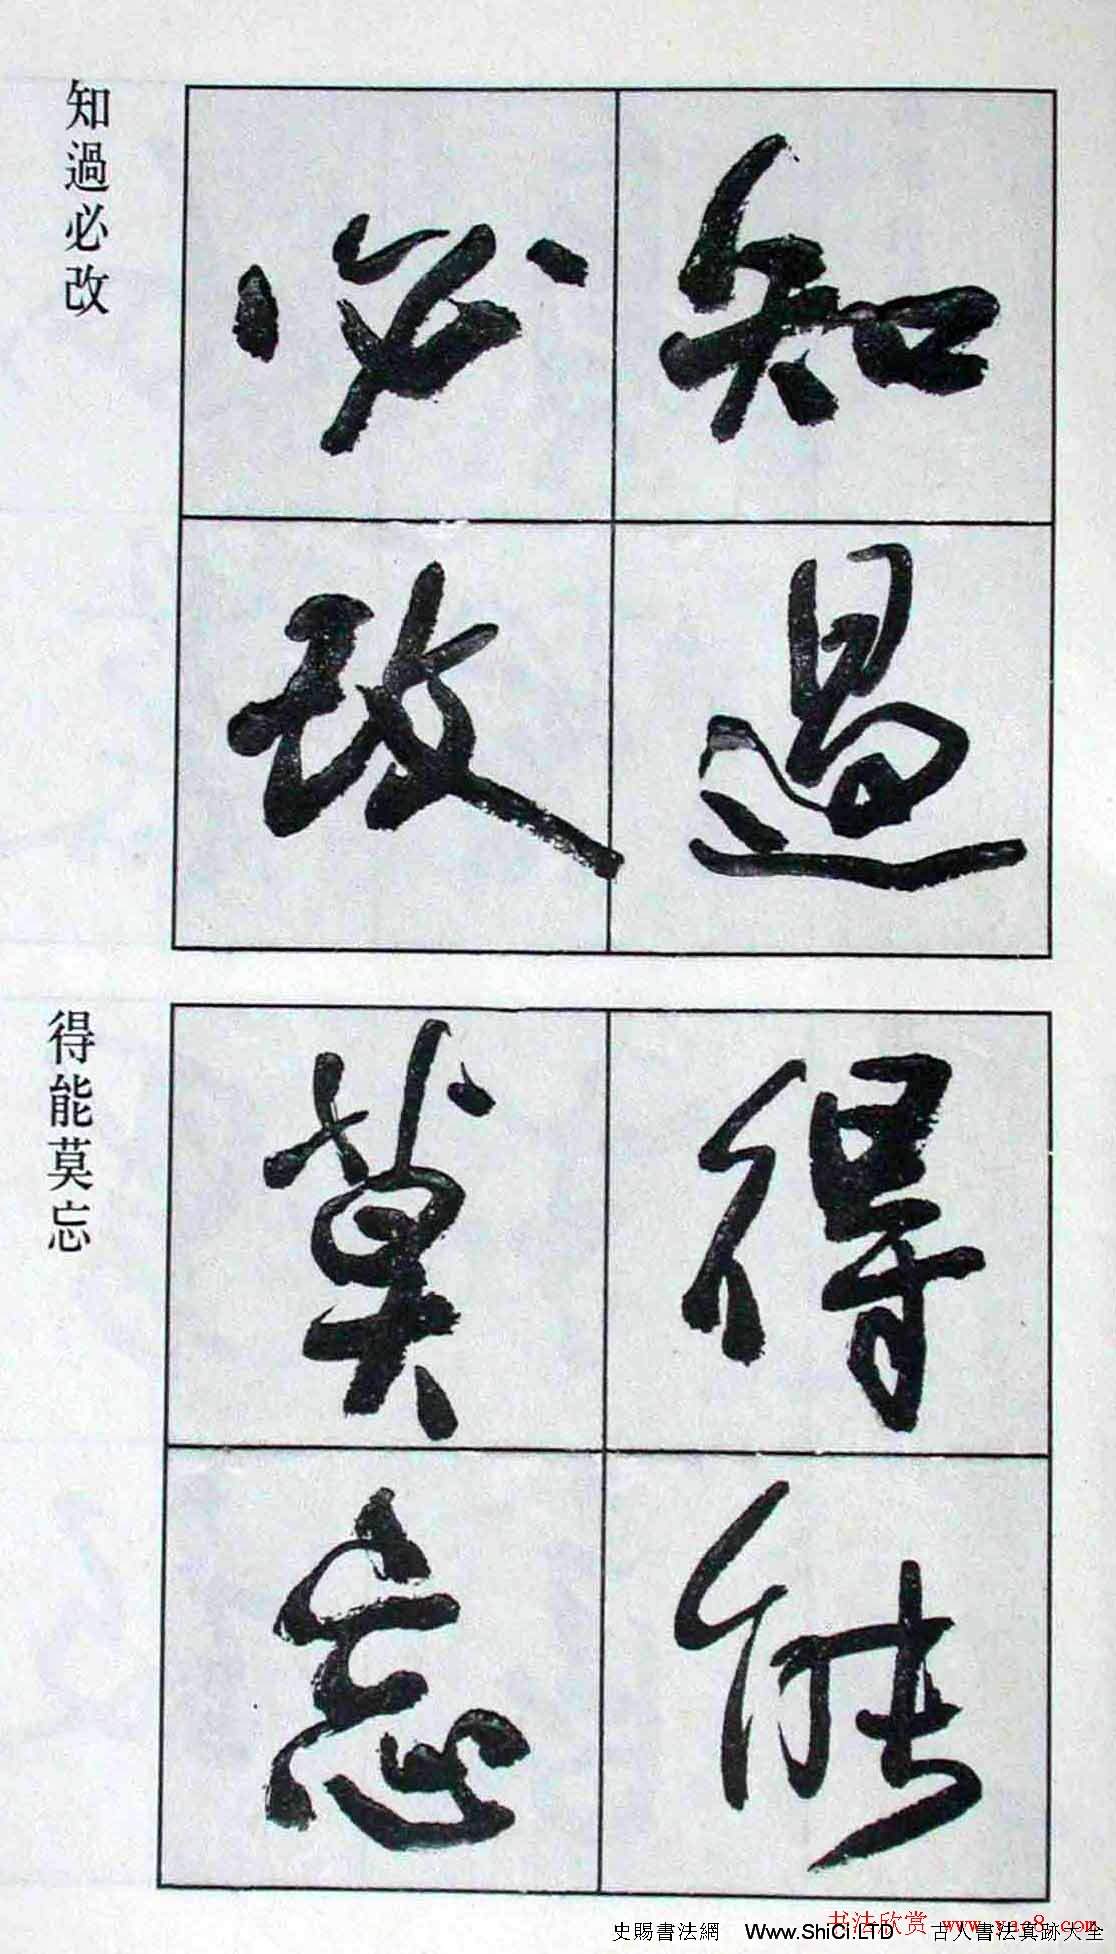 知過
必改
知過必改
得能
莫忘
得能莫忘
书法欣赏 www.yac8.com
史賜書法網 Www.ShiCi.LTD 古人書法真跡大全